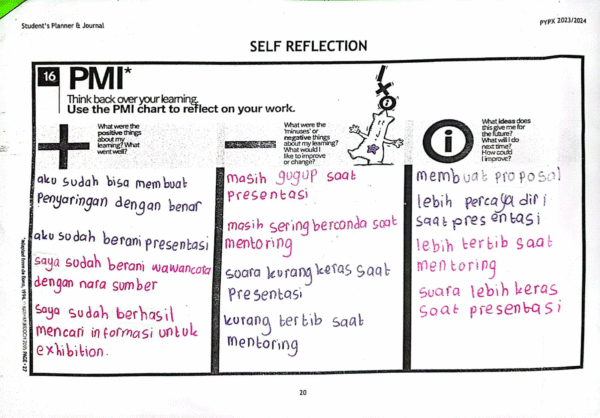 Student's Planner & Journal
PYPX 2023/2024
SELF REFLECTION
16
PMI*
Think back over your learning.
Use the PMI chart to reflect on your work.
What were the
positive things
about my
learning? What
went well?
aku sudah bisa membuat
Penyaringan dengan benar
aku sudah berani presentasi
saya sudah berani wawancara
dengan nara sumber
saya sudah berhasil
mencari informasi untuk
exhibition.
What were the
'minuses' or
negative things
about my learning?
What would I
like to improve
or change?
masih gugup saat
presentasi
masih sering berconda saat
mentoring
suara kurang keras saat
Presentasi
kurang tertib saat
mentoring
What ideas does
this give me for
the future?
What will I do
next time?
How could
I improve?
membuat proposal
lebih percaya diri
saat presentasi
lebih tertib saat
mentoring
suara lebih keras
saat presentasi
20